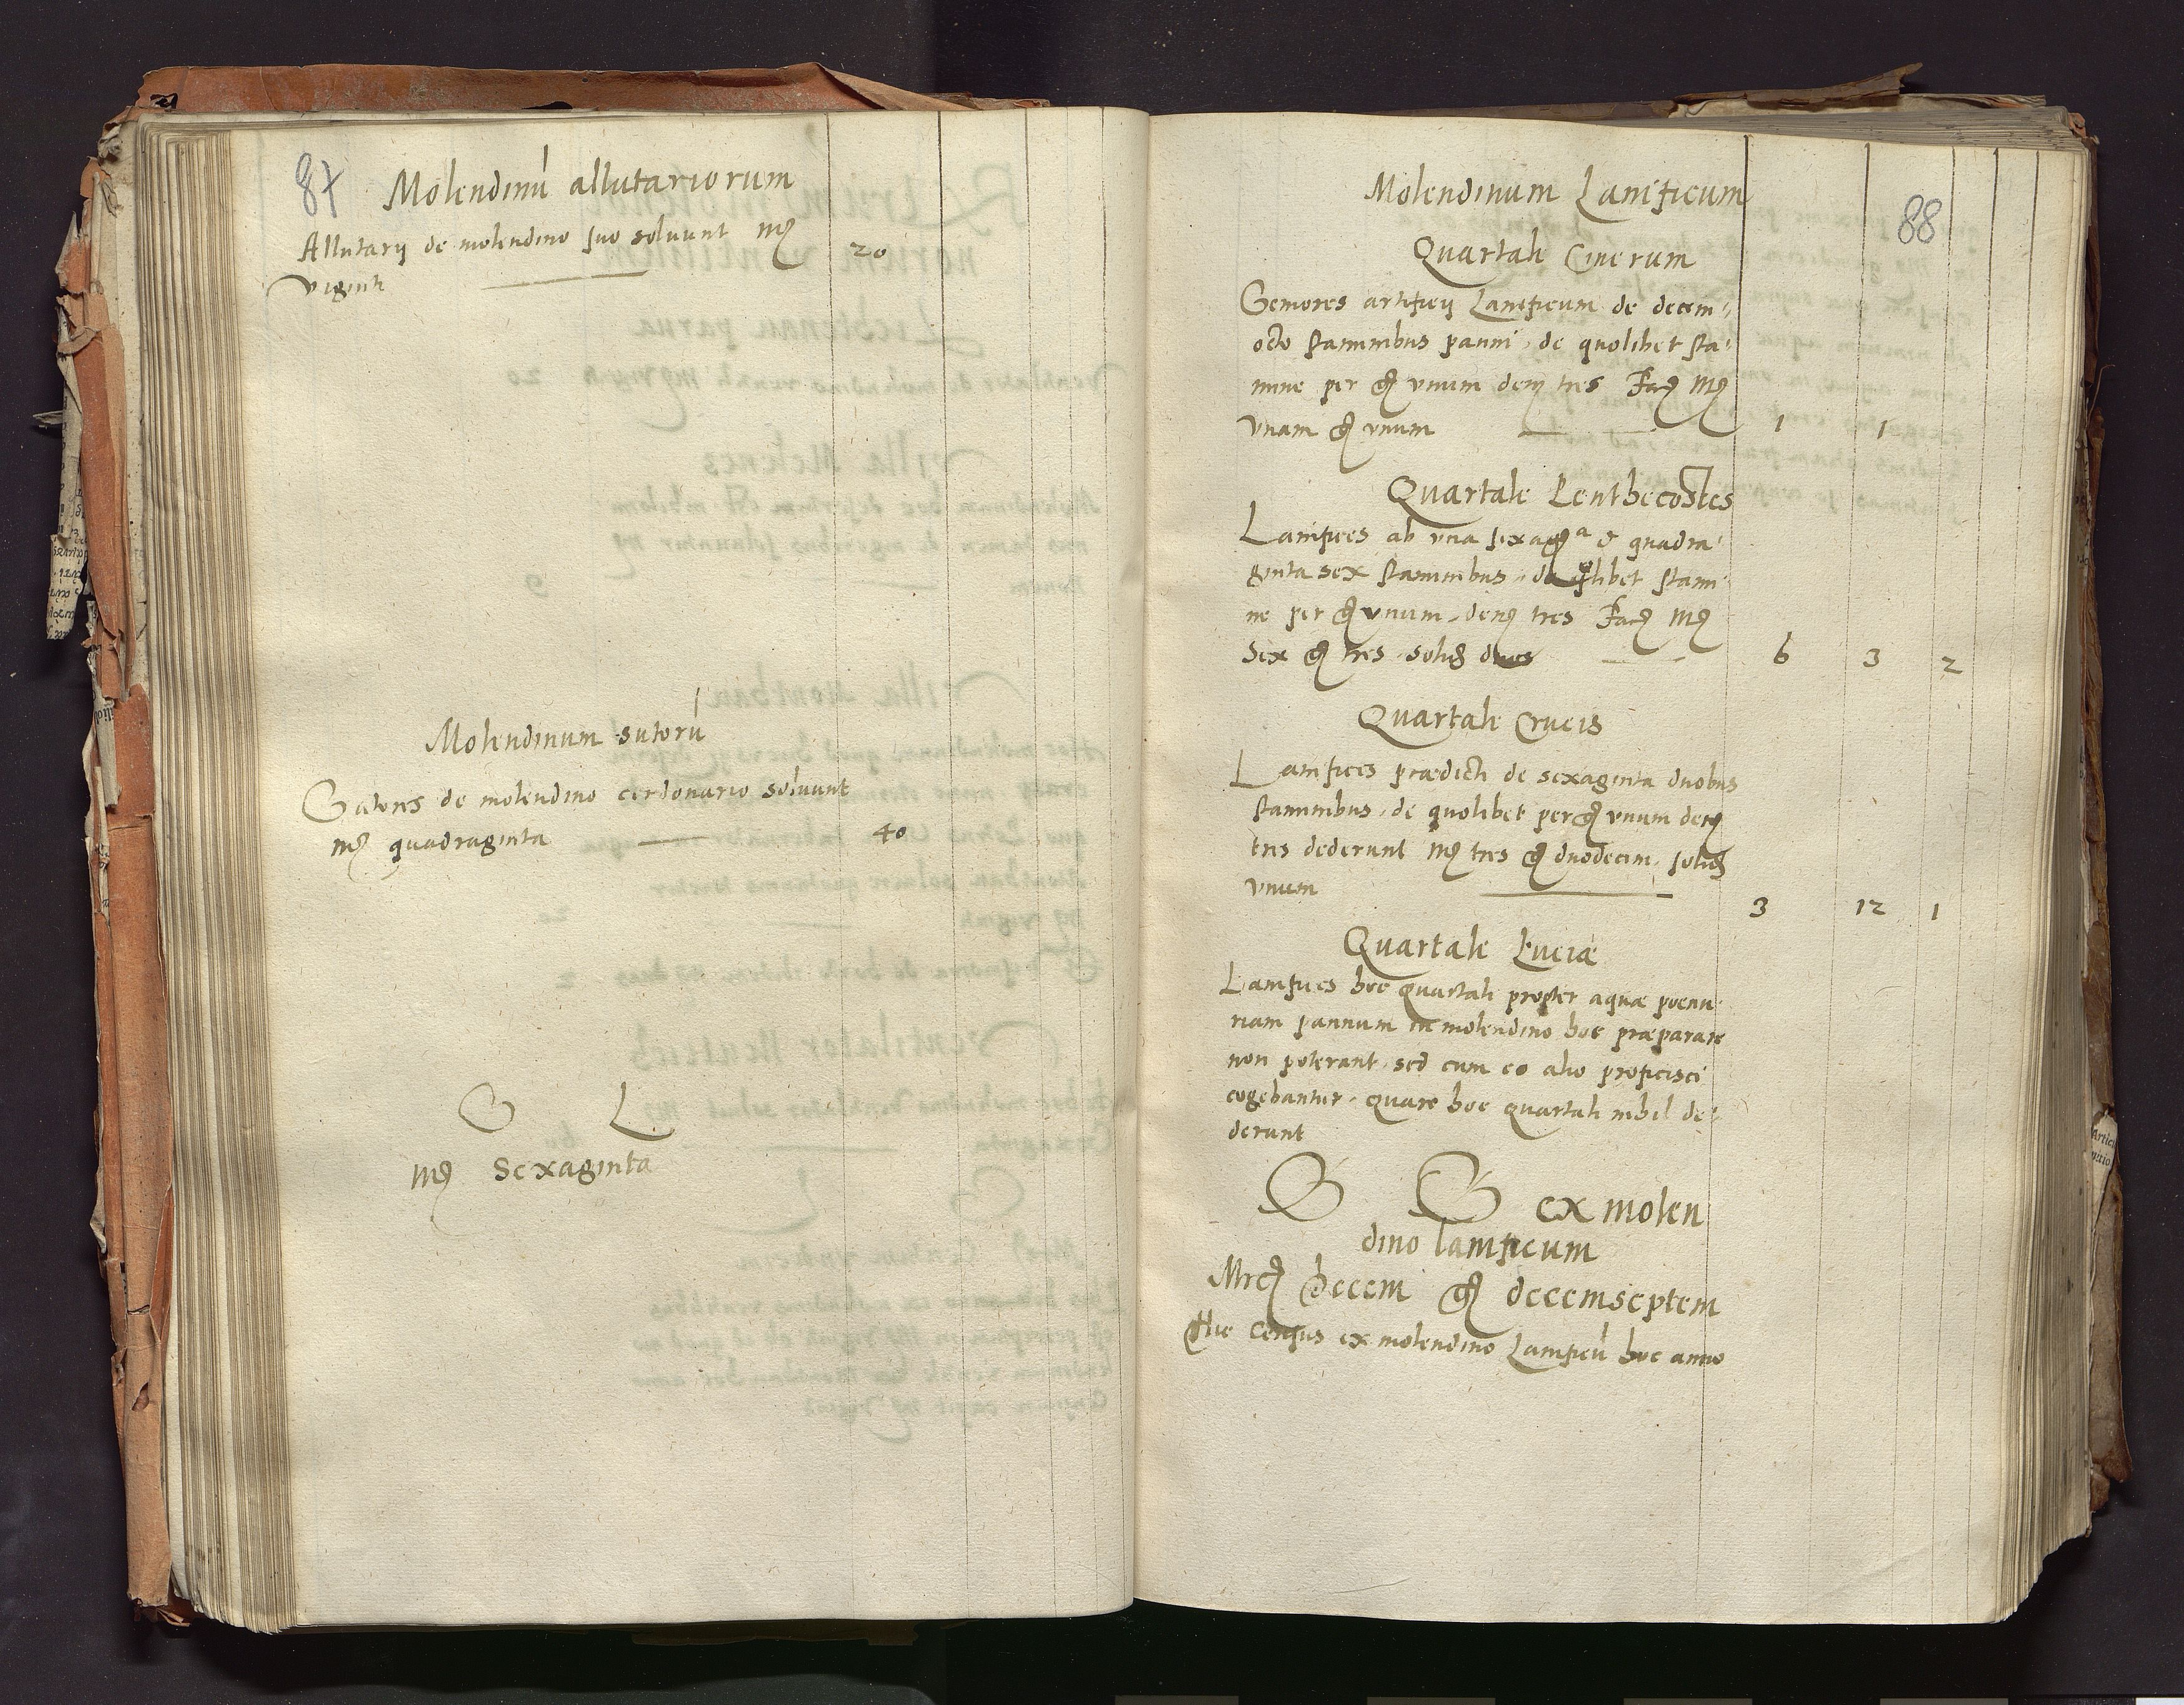 87
Molendinu allutariorum
Allutarii de molendino suo soluunt mg 20
viginti
Molendinum sutoru
Sutores de molendino cerdonario soluunt
mg quadraginta 40
S L
mg Sexaginta
88
Molendinum Lanificum
Quartale Cinerum
Seniores artificii Lanificum de decem
octo staminibus panni, de quolibet sta
mine per g vnum deny tres Facg Mg
vnam g vnum 1 1
Quartale Penthecostes
Lanifices ab vna sexagª & quadra
ginta sex staminibus, de qlibet stami
ne per g vnum, deng tres Facg Mg
Sex g tres solig duos 6 3 2
Quartale Crucis
Lanifices praedicti de sexaginta duobus
staminibus, de quolibet per g vnum deng
tres dederunt Mg tres g duodecim, solig
vnum 3 12 1
Quartale Luciæ
Lanifices hoc quartali propter aquæ poenu
riam pannum in molendino hoc præparare
non poterant, sed cum eo alio proficisci
cogebantur, quare hoc quartali nihil de
derunt
S S ex molen
dino lanificum
Mrcg decem g decemseptem
Hic Census ex molendino Lanificu hoc anno